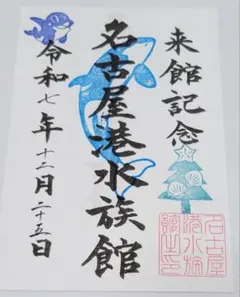 来館記念
名古屋港水族館
令和七年十二月二十五日
名古屋
港水族
館之印